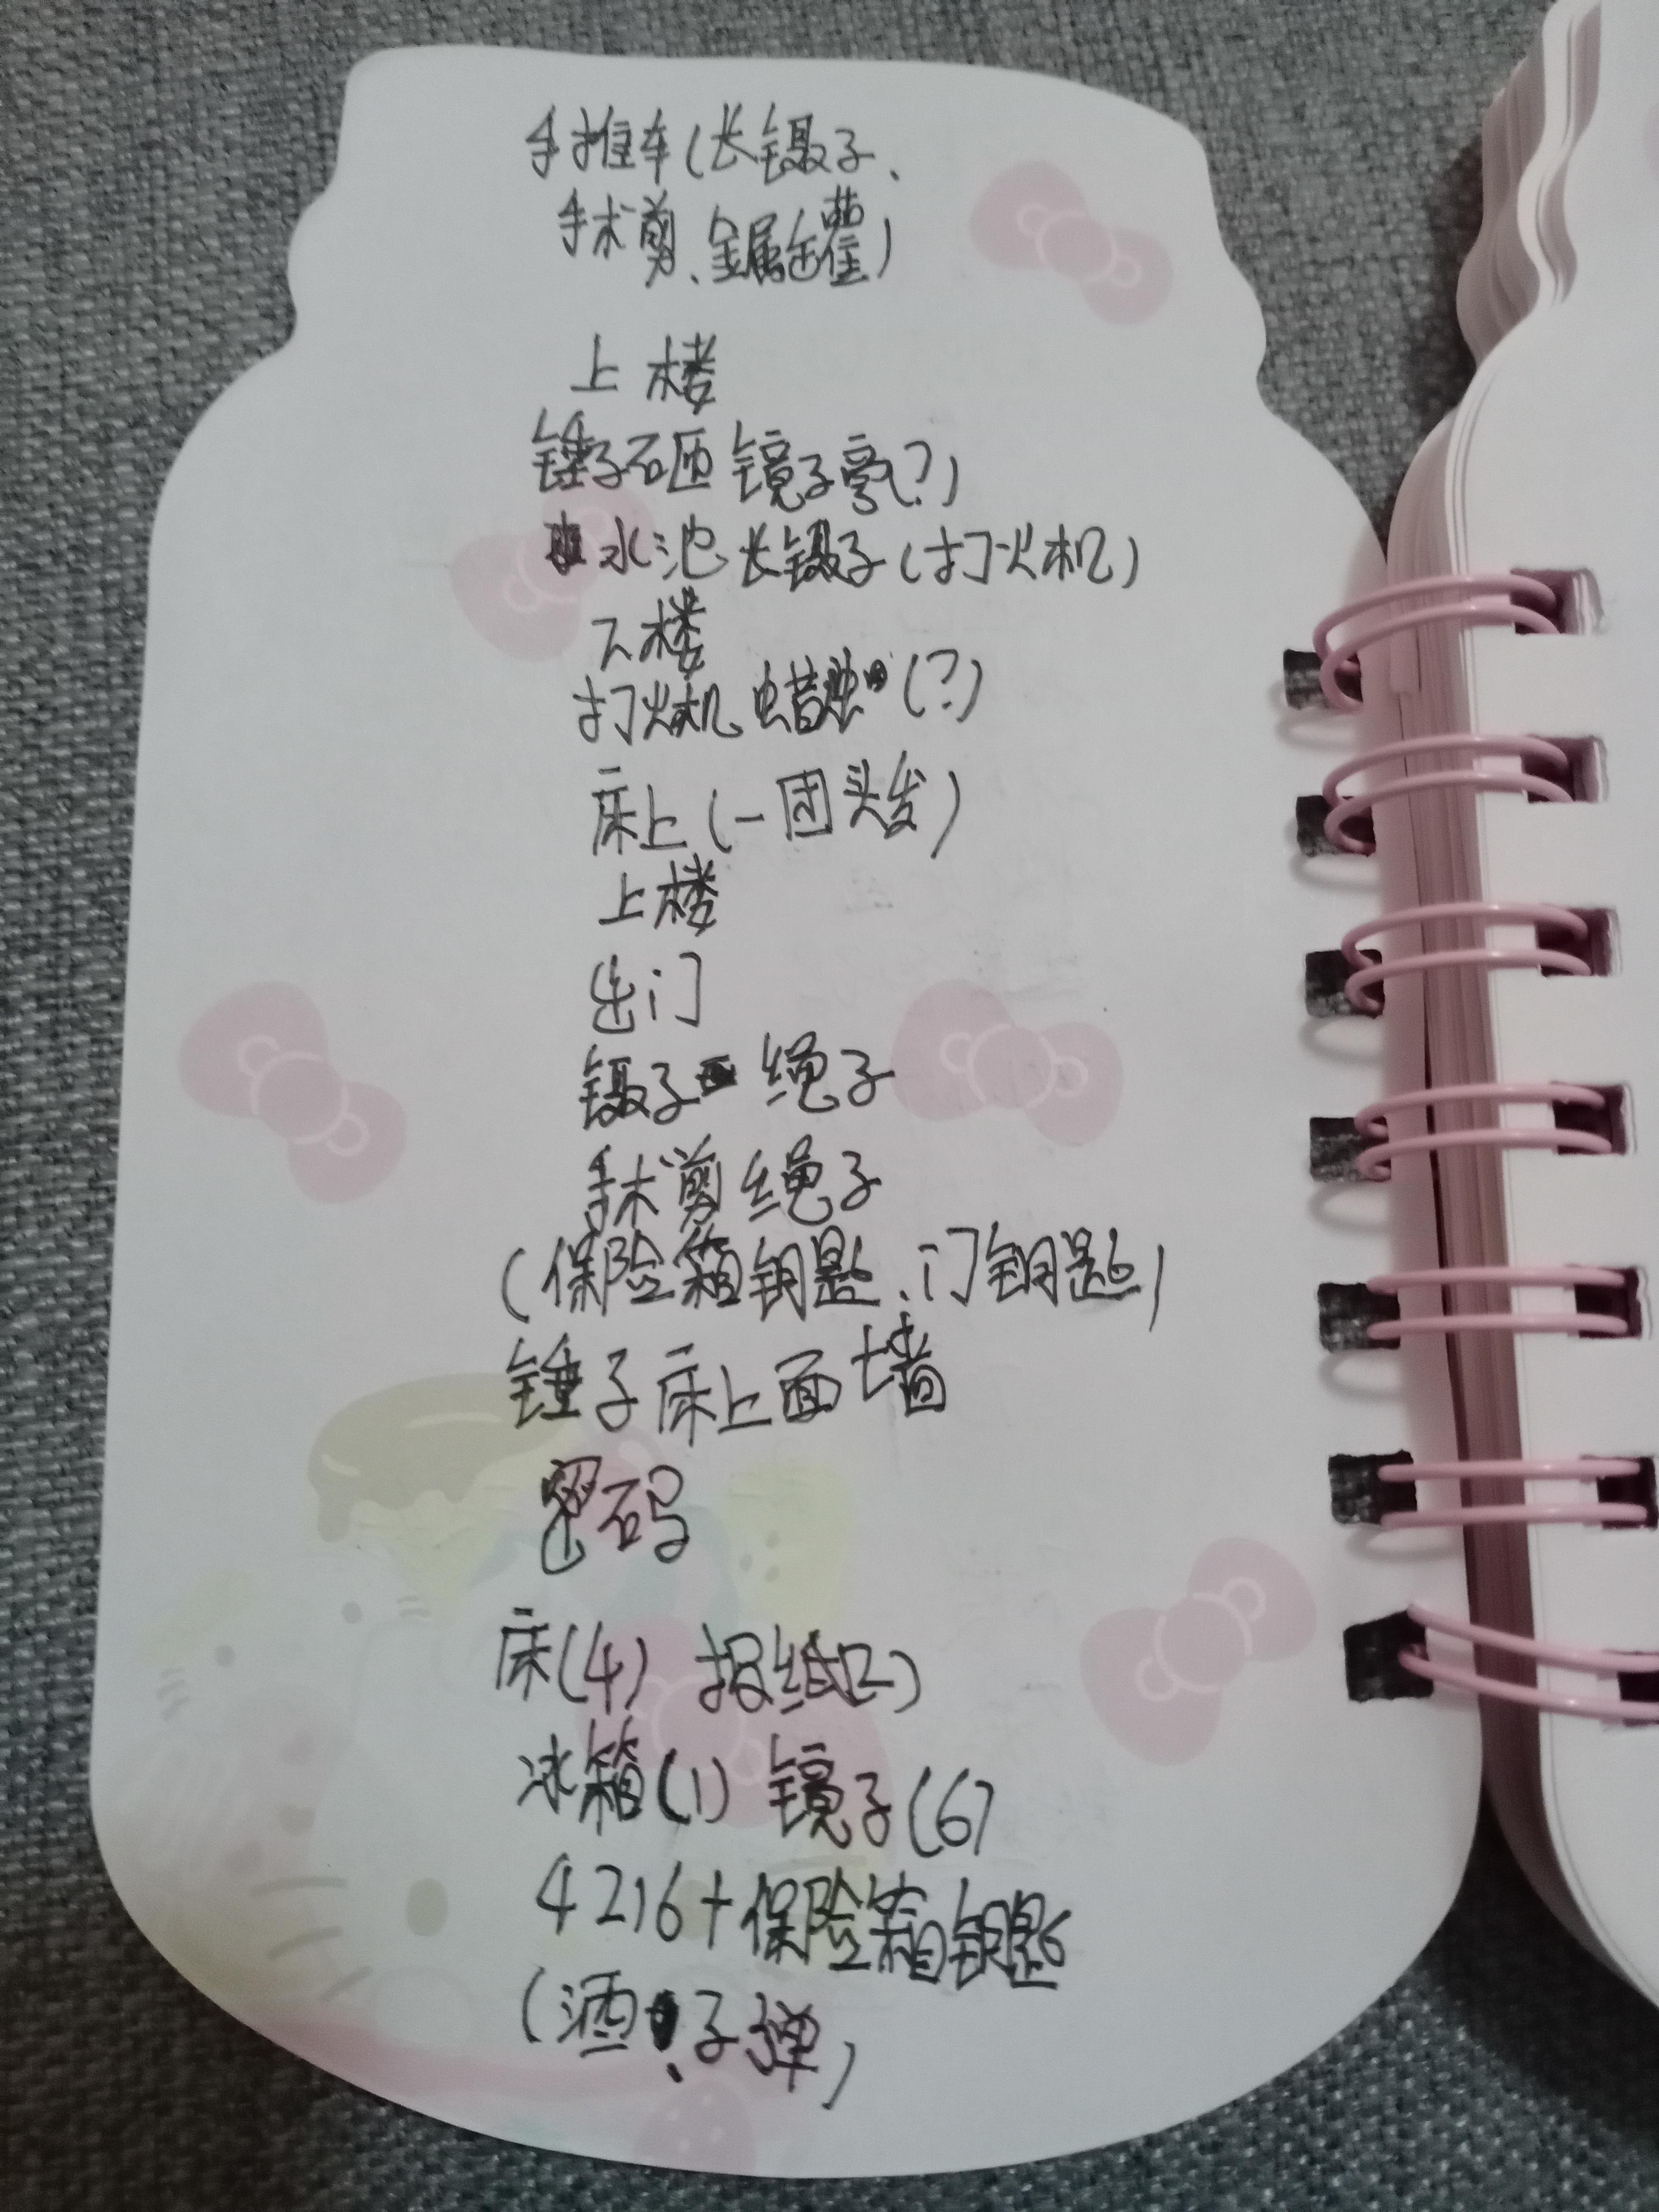 手推车(长镊子、
手术剪、金属罐)
上楼
锤子砸镜子(?)
水池长镊子(打火机)
下楼
打火机 蜡烛(?)
床上(一团头发)
上楼
出门
镊子 绳子
手术剪绳子
(保险箱钥匙、门钥匙)
锤子床上面墙
密码
床(4) 报纸(2)
冰箱(1) 镜子(6)
4216+保险箱钥匙
(酒、子弹)